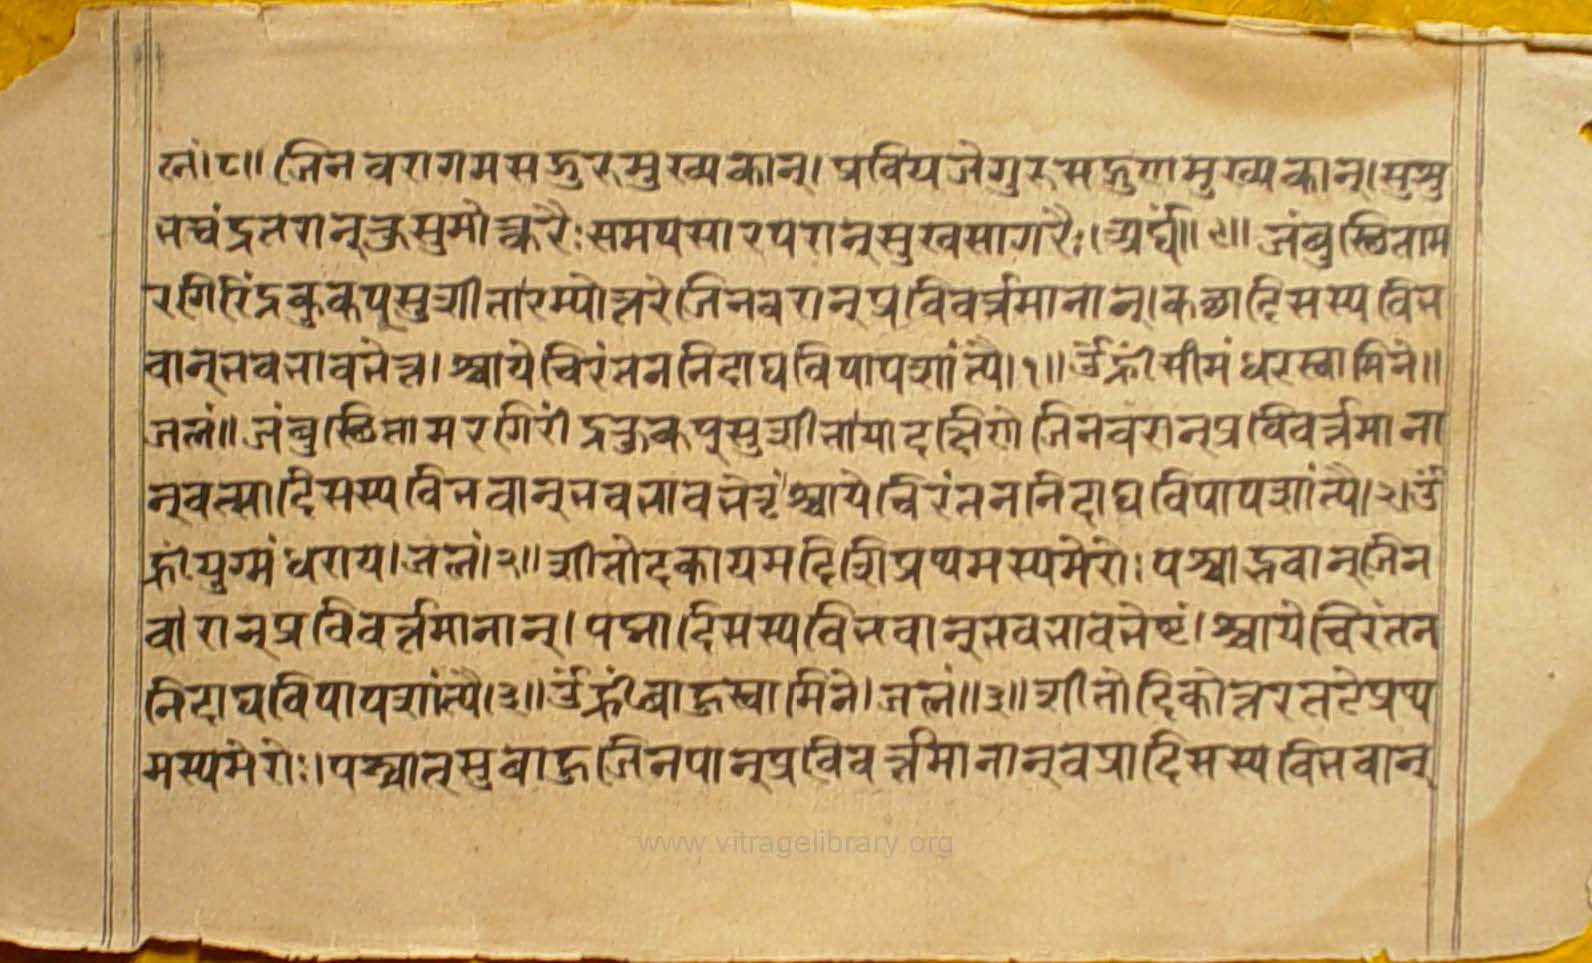 लां।८॥ जिनवरागमसद्गुरुमुख्यकान्। प्रवियजेगुरुसद्गुणमुख्यकान्। सुसु
तच्चंद्रतरान्कुसुमोत्करैः समयसारपरान्सुखसागरैः। अर्घं॥९॥ जंबुस्छितामर
रगिरिंद्रकुकपूसुशीतारम्योत्तरे जिनवरान्प्रविवर्त्तमानान्। कछादिसस्यवित
वान्तवतावतेत्र। श्चाये चिरंतननिदाघविपापशांत्यै।१॥ उँह्रीं सीमंधरस्वामिने॥
जलं॥ जंबुस्छितामरगिरींद्रकुकपुसुशीतायादक्षिणे जिनवरान्प्रविवर्त्तमाना
न्वत्सादिसस्यवितवान्तवतावतेष्टं श्चाये चिरंतननिदाघविपापशांत्यै।२।उँ
ह्रीं युग्मंधराय।जलं।२॥ शीतोदकायमदिशिप्रथमस्यमेरोः पश्चाद्भवान्जिन
वारान्प्रविवर्त्तमानान्। पद्मादिसस्यवितवान्तवतावतेष्टं। श्चाये चिरंतन
निदाघविपापशांत्यै।३॥ उँह्रीं बाहुस्वामिने।जलं॥३॥ शीतोदिकोत्तरतटेप्रथ
मस्यमेरोः।पश्चात्सुबाहुजिनपान्प्रविवर्त्तमानान्वप्रादिसस्यवितवान्
www.vitragelibrary.org